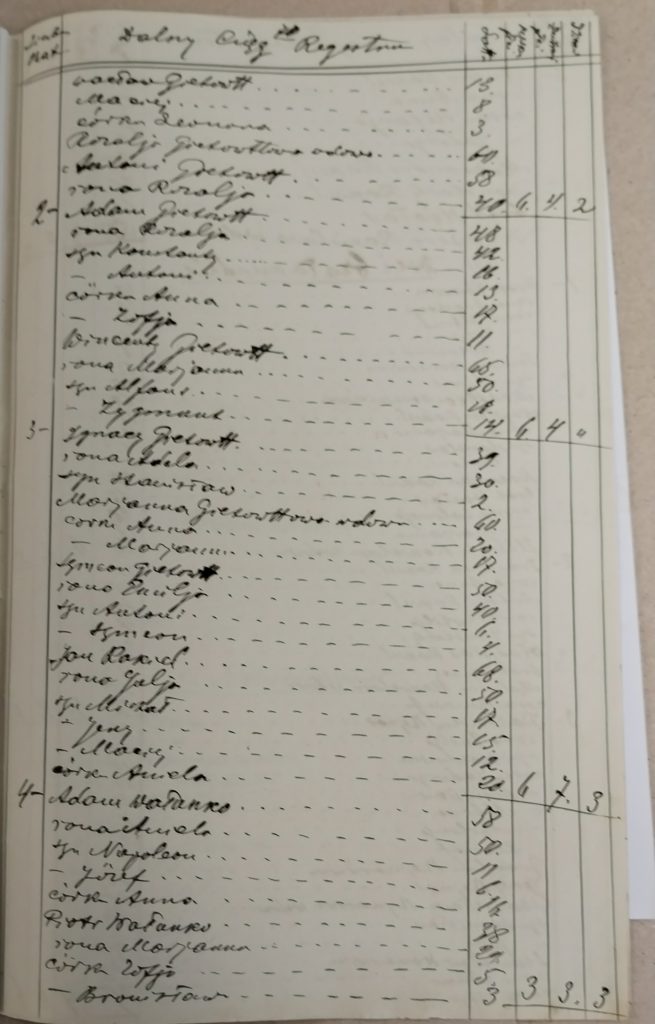 Dalszy Ciąg Regestru
Wacław Gietowtt 13.
Maciej 8
córka Leonora 3.
Rozalja Gietowttowa wdowa 60.
Antoni Gietowtt 58
żona Rozalja 40. 6. 4. 2
2- Adam Gietowtt 48
żona Rozalja 42.
syn Konstanty 16
- Antoni 13.
córka Anna 17.
- Zofja 11.
Wincenty Gietowtt 65.
żona Marjanna 50.
syn Alfons 18.
- Zygmunt 14. 6 4 "
3- Ignacy Gietowtt 39.
żona Adela 30.
syn Stanisław 2.
Marjanna Gietowttowa wdowa 60
córka Anna 20.
- Marjanna 17.
Symeon Gietowtt 50.
żona Emilja 40
syn Antoni 6.
- Symeon 4.
Jan 68.
żona Julja 50.
syn Michał 17.
- Jerzy 15.
- Maciej 12.
córka Aniela 20 6 7. 3
4- Adam Wołanko 58
żona Aniela 50.
syn Napoleon 11
- Józef 6
córka Anna 16
Piotr Wołanko
żona Marjanna
córka Zofja 5.
- Bronisława 3 3 3. 3